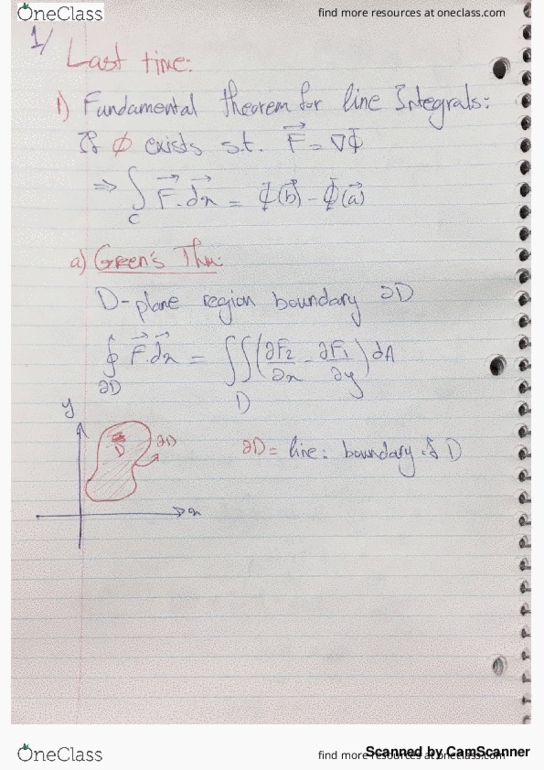 OneClass
find more resources at oneclass.com
1/
Last time:
1) Fundamental theorem for line Integrals:
If ϕ exists s.t. F⃗ = ∇Φ
⇒ ∫_C F⃗. dx⃗ = Φ(b⃗) - Φ(a⃗)
a) Green's Thm:
D-plane region boundary ∂D
∮_∂D F⃗. dx⃗ = ∬_D (∂F₂/∂x - ∂F₁/∂y) dA
y
D
∂D
∂D = line: boundary of D
x
OneClass
find more resources at oneclass.com
Scanned by CamScanner